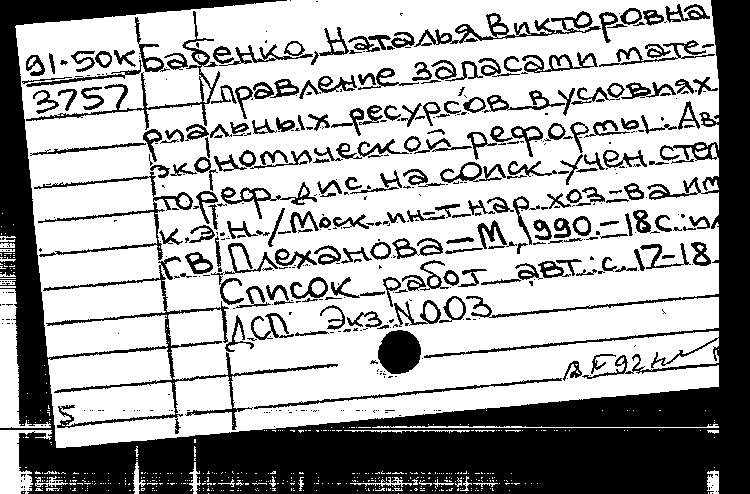 91-50к Бабенко, Наталья Викторовна
3757 Управление запасами мате-
риальных ресурсов в условиях
экономической реформы: Ав-
тореф. дис. на соиск. учен. степ
к.э.н. / Моск. ин-т нар. хоз-ва им
Г.В. Плеханова - М., 1990. - 18 с.: ил
Список работ авт.: с. 17-18
ДСП. Экз. N 003
5